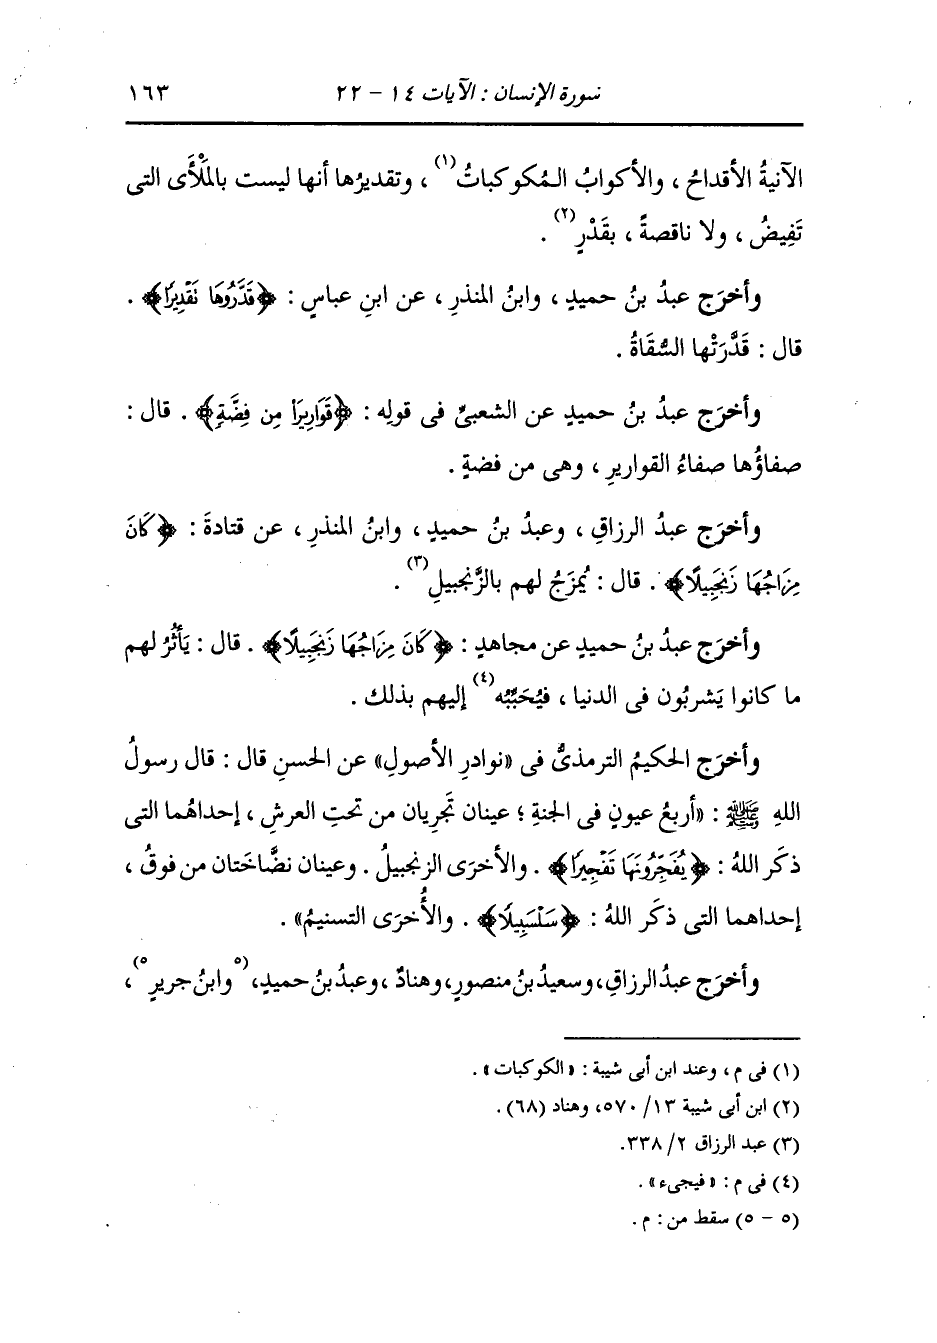 سورة الإنسان : الآيات ١٤ - ٢٢ ١٦٣
الآنيةُ الأقداحُ ، والأكوابُ المُكوكباتُ(١) ، وتقديرُها أنها ليست بالمَلْأَى التى
تَفِيضُ ، ولا ناقصةً ، بقَدْرٍ(٢) .
وأخرَج عبدُ بنُ حميدٍ ، وابنُ المنذرِ ، عن ابنِ عباسٍ : ﴿قَدَّرُوهَا تَقْدِيرًا﴾ .
قال : قَدَّرَتْها السُّقَاةُ .
وأخرَج عبدُ بنُ حميدٍ عن الشعبىِّ فى قولِه : ﴿قَوَارِيرَا۟ مِن فِضَّةٍ﴾ . قال :
صفاؤُها صفاءُ القواريرِ ، وهى من فضةٍ .
وأخرَج عبدُ الرزاقِ ، وعبدُ بنُ حميدٍ ، وابنُ المنذرِ ، عن قتادةَ : ﴿كَانَ
مِزَاجُهَا زَنجَبِيلًا﴾ . قال : يُمزَجُ لهم بالزَّنجبيلِ(٣) .
وأخرَج عبدُ بنُ حميدٍ عن مجاهدٍ : ﴿كَانَ مِزَاجُهَا زَنجَبِيلًا﴾ . قال : يَأْثُرُ لهم
ما كانوا يَشربُون فى الدنيا ، فيُحَبِّبُه(٤) إليهم بذلك .
وأخرَج الحكيمُ الترمذىُّ فى «نوادرِ الأصولِ» عن الحسنِ قال : قال رسولُ
اللهِ ﷺ : «أربعُ عيونٍ فى الجنةِ ؛ عينان تَجرِيان من تحتِ العرشِ ، إحداهُما التى
ذكَر اللهُ : ﴿يُفَجِّرُونَهَا تَفْجِيرًا﴾ . والأخرَى الزنجبيلُ . وعينان نضَّاخَتان من فوقُ ،
إحداهما التى ذكَر اللهُ : ﴿سَلْسَبِيلًا﴾ . والأُخرَى التسنيمُ» .
وأخرَج عبدُ الرزاقِ، وسعيدُ بنُ منصورٍ، وهنادٌ ، وعبدُ بنُ حميدٍ، (٥وابنُ جريرٍ٥) ،
(١) فى م ، وعند ابن أبى شيبة : «الكوكبات» .
(٢) ابن أبى شيبة ١٣/ ٥٧٠، وهناد (٦٨) .
(٣) عبد الرزاق ٢/ ٣٣٨.
(٤) فى م : «فيجىء» .
(٥ - ٥) سقط من : م .